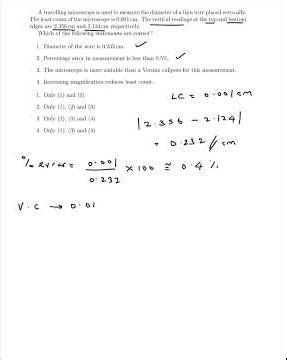 A travelling microscope is used to measure the diameter of a thin wire placed vertically.
The least count of the microscope is 0.001 cm. The vertical readings at the top and bottom
edges are 2.356 cm and 2.124 cm respectively.
Which of the following statements are correct?
1. Diameter of the wire is 0.232 cm.
2. Percentage error in measurement is less than 0.5%.
3. The microscope is more suitable than a Vernier calipers for this measurement.
4. Increasing magnification reduces least count.
1. Only (1) and (2)
2. Only (1), (2) and (3)
3. Only (2), (3) and (4)
4. Only (1), (3) and (4)
LC = 0.001 cm
|2.356 - 2.124|
= 0.232 / cm
% error = 0.001 / 0.232 × 100 ≅ 0.4 %
V.C → 0.01